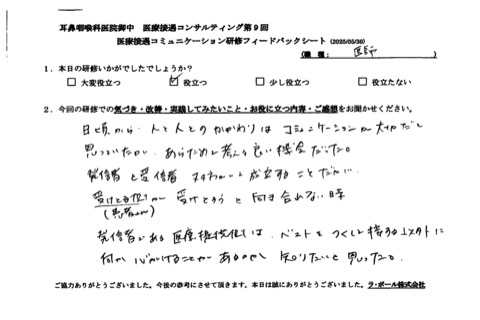 耳鼻咽喉科医院御中　医療接遇コンサルティング第9回
医療接遇コミュニケーション研修フィードバックシート (2025/05/30)
(職種： 医師 )
1．本日の研修いかがでしたでしょうか？
□ 大変役立つ　☑ 役立つ　□ 少し役立つ　□ 役立たない
2．今回の研修での気づき・改善・実践してみたいこと・お役に立つ内容・ご感想をお聞かせください。
日頃から 人と人とのかかわりは コミュニケーションが大切だと
思っていたが、あらためて考える良い機会だった。
発信者と受信者 がいて成立することだが、
受けとる側が 受けとろうと 向き合れない時
(患者さん)
発信者である医療機関側は、ベストをつくして接する以外に
何か心がけることがあるのか 知りたいと思った。
ご協力ありがとうございました。今後の参考にさせて頂きます。本日は誠にありがとうございました。ラ・ポール株式会社